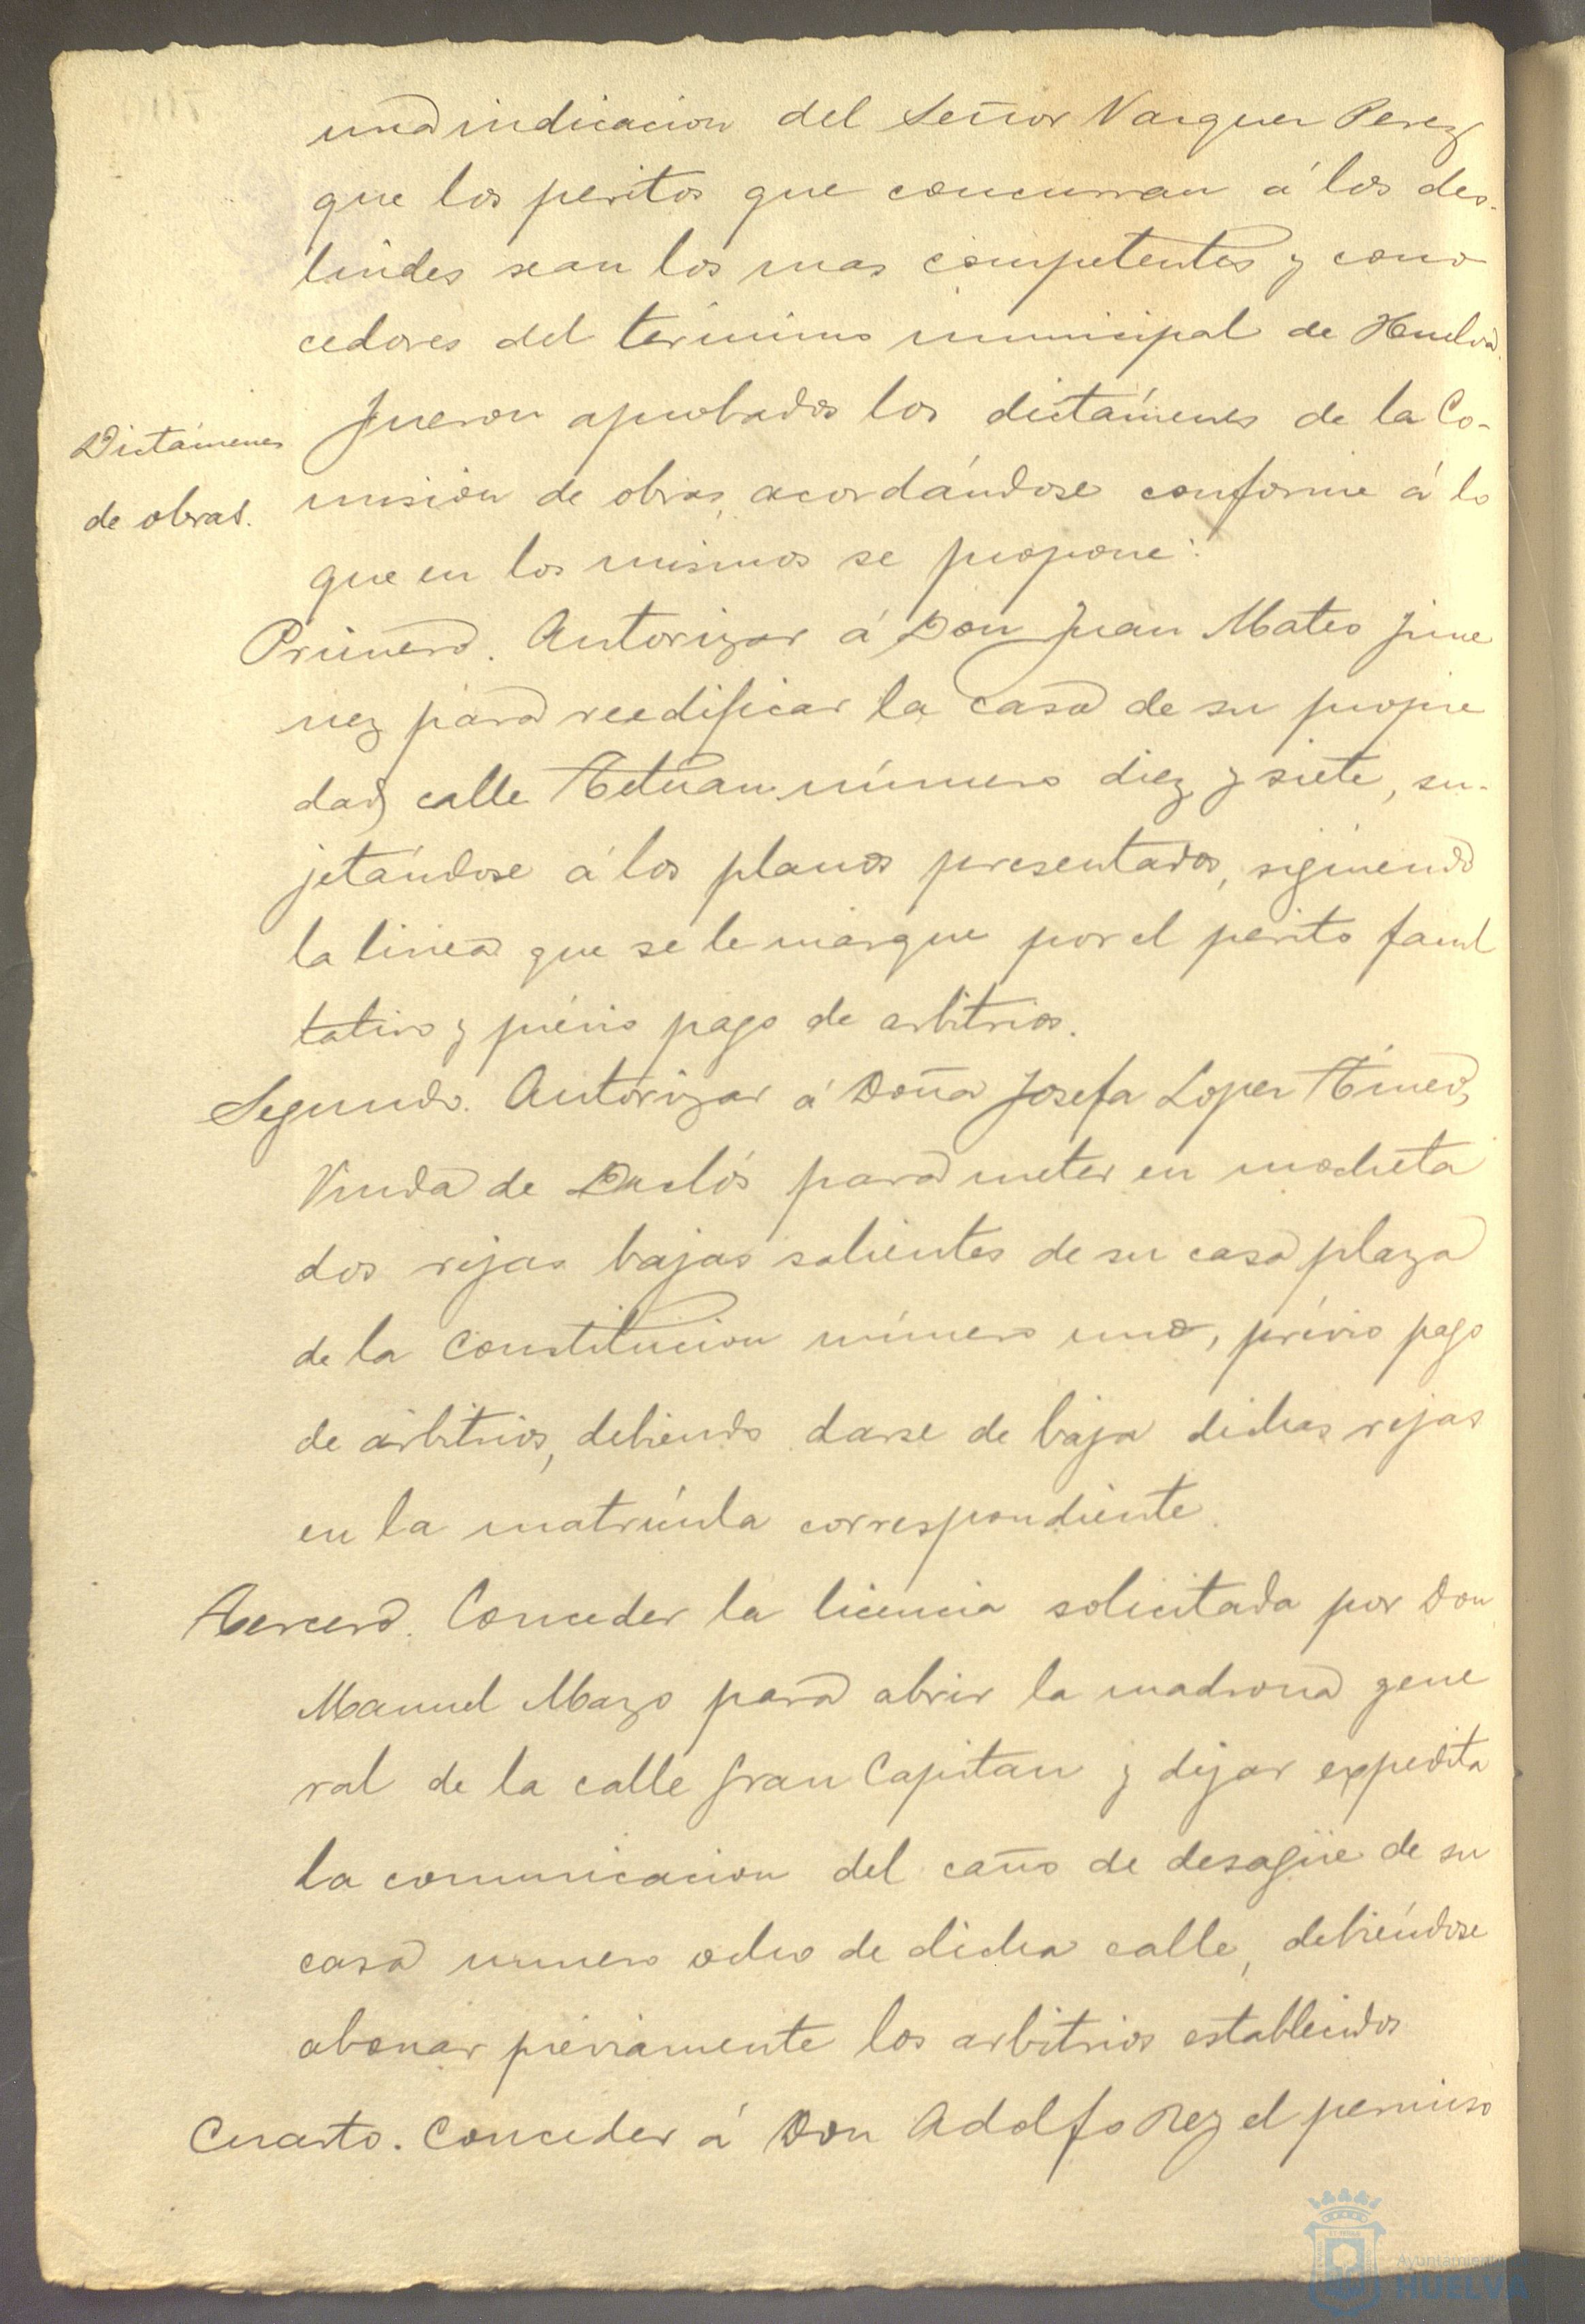 una indicacion del Señor Vazquez Perez
que los peritos que concurran á los des-
lindes sean los mas competentes y cono
cedores del término municipal de Huelva.
Dictámenes
de obras.
Fueron aprobados los dictámenes de la Co-
mision de obras, acordándose conforme á lo
que en los mismos se propone:
Primero. Autorizar á Don Juan Mateo Jime
nez para reedificar la casa de su propie
dad calle Tetuan número diez y siete, su-
jetándose á los planos presentados, siguiendo
la linea que se le marque por el perito facul
tativo y prévio pago de arbitrios.
Segundo. Autorizar á Doña Josefa Lopez
Viuda de para meter en mocheta
dos rejas bajas salientes de su casa plaza
de la Constitucion número uno, prévio pago
de arbitrios, debiendo darse de baja dichas rejas
en la matrícula correspondiente.
Tercero. Conceder la licencia solicitada por Don
Manuel Mazo para abrir la madrona gene
ral de la calle Gran Capitan y dejar expedita
la comunicacion del caño de desagüe de su
casa numero ocho de dicha calle, debiéndose
abonar préviamente los arbitrios establecidos
Cuarto. Conceder á Don Adolfo Rey el permiso
Ayuntamiento
HUELVA